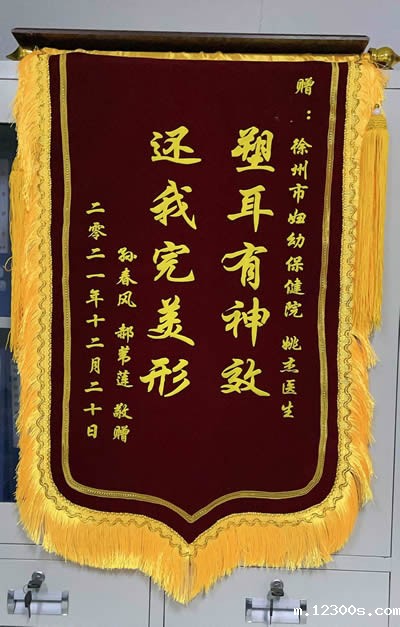 赠：徐州市妇幼保健院 姚杰医生
塑耳有神效
还我完美形
孙春风 郝苇莲 敬赠
二零二一年十二月二十日
m.12300s.com